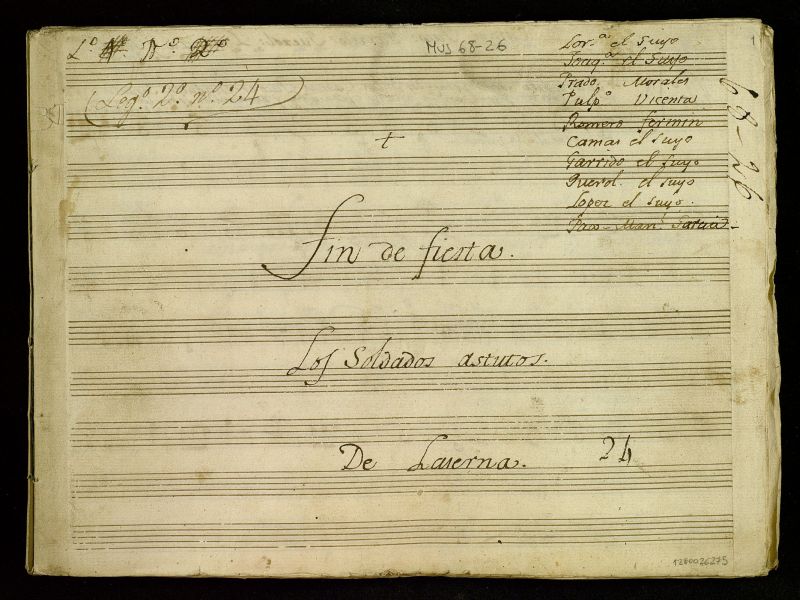 L.º 1.º 2.º
MUS 68-26
1
Lor.ª el Suyo
Joaq.ª el Suyo
Prado. Morales
Pulp.º Vicenta
Romero fermin
Camas el suyo
Garrido el suyo
Querol. el suyo
Lopez el suyo.
Paco - Man.l Garcia
68-26
Leg.º 2.º n.º 24
Fin de fiesta.
Los Soldados astutos.
De Laserna. 24
1200026275